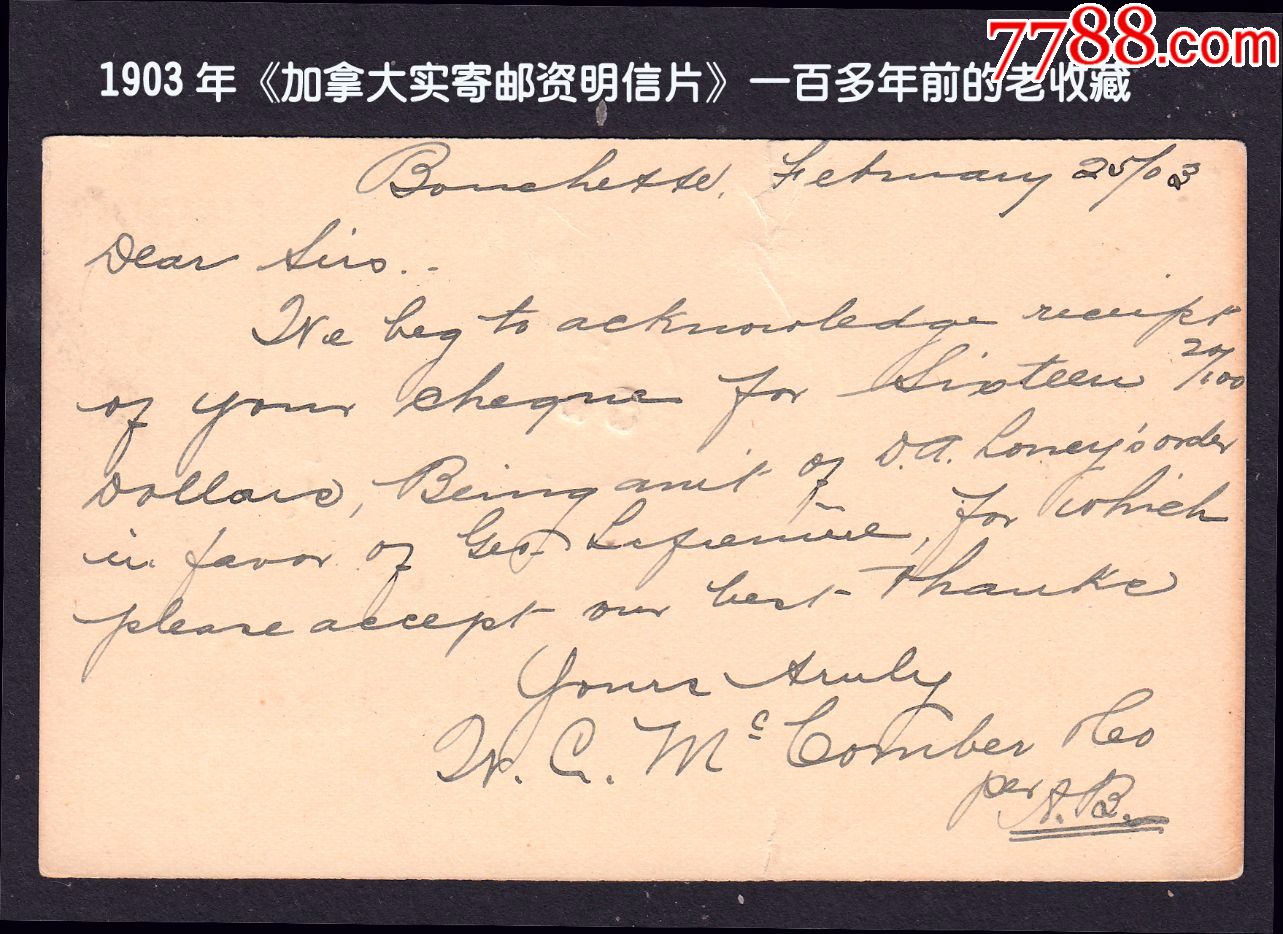 7788.com
1903年《加拿大实寄邮资明信片》一百多年前的老收藏
Bouchette, February 25/03
Dear Sirs..
We beg to acknowledge receipt
of your cheque for Sixteen 20/100
Dollars, Being amt of D.A. Loney's order
in favor of Geo. for which
please accept our best thanks
Yours truly
W. G. Mc Comber & Co
per A.B.